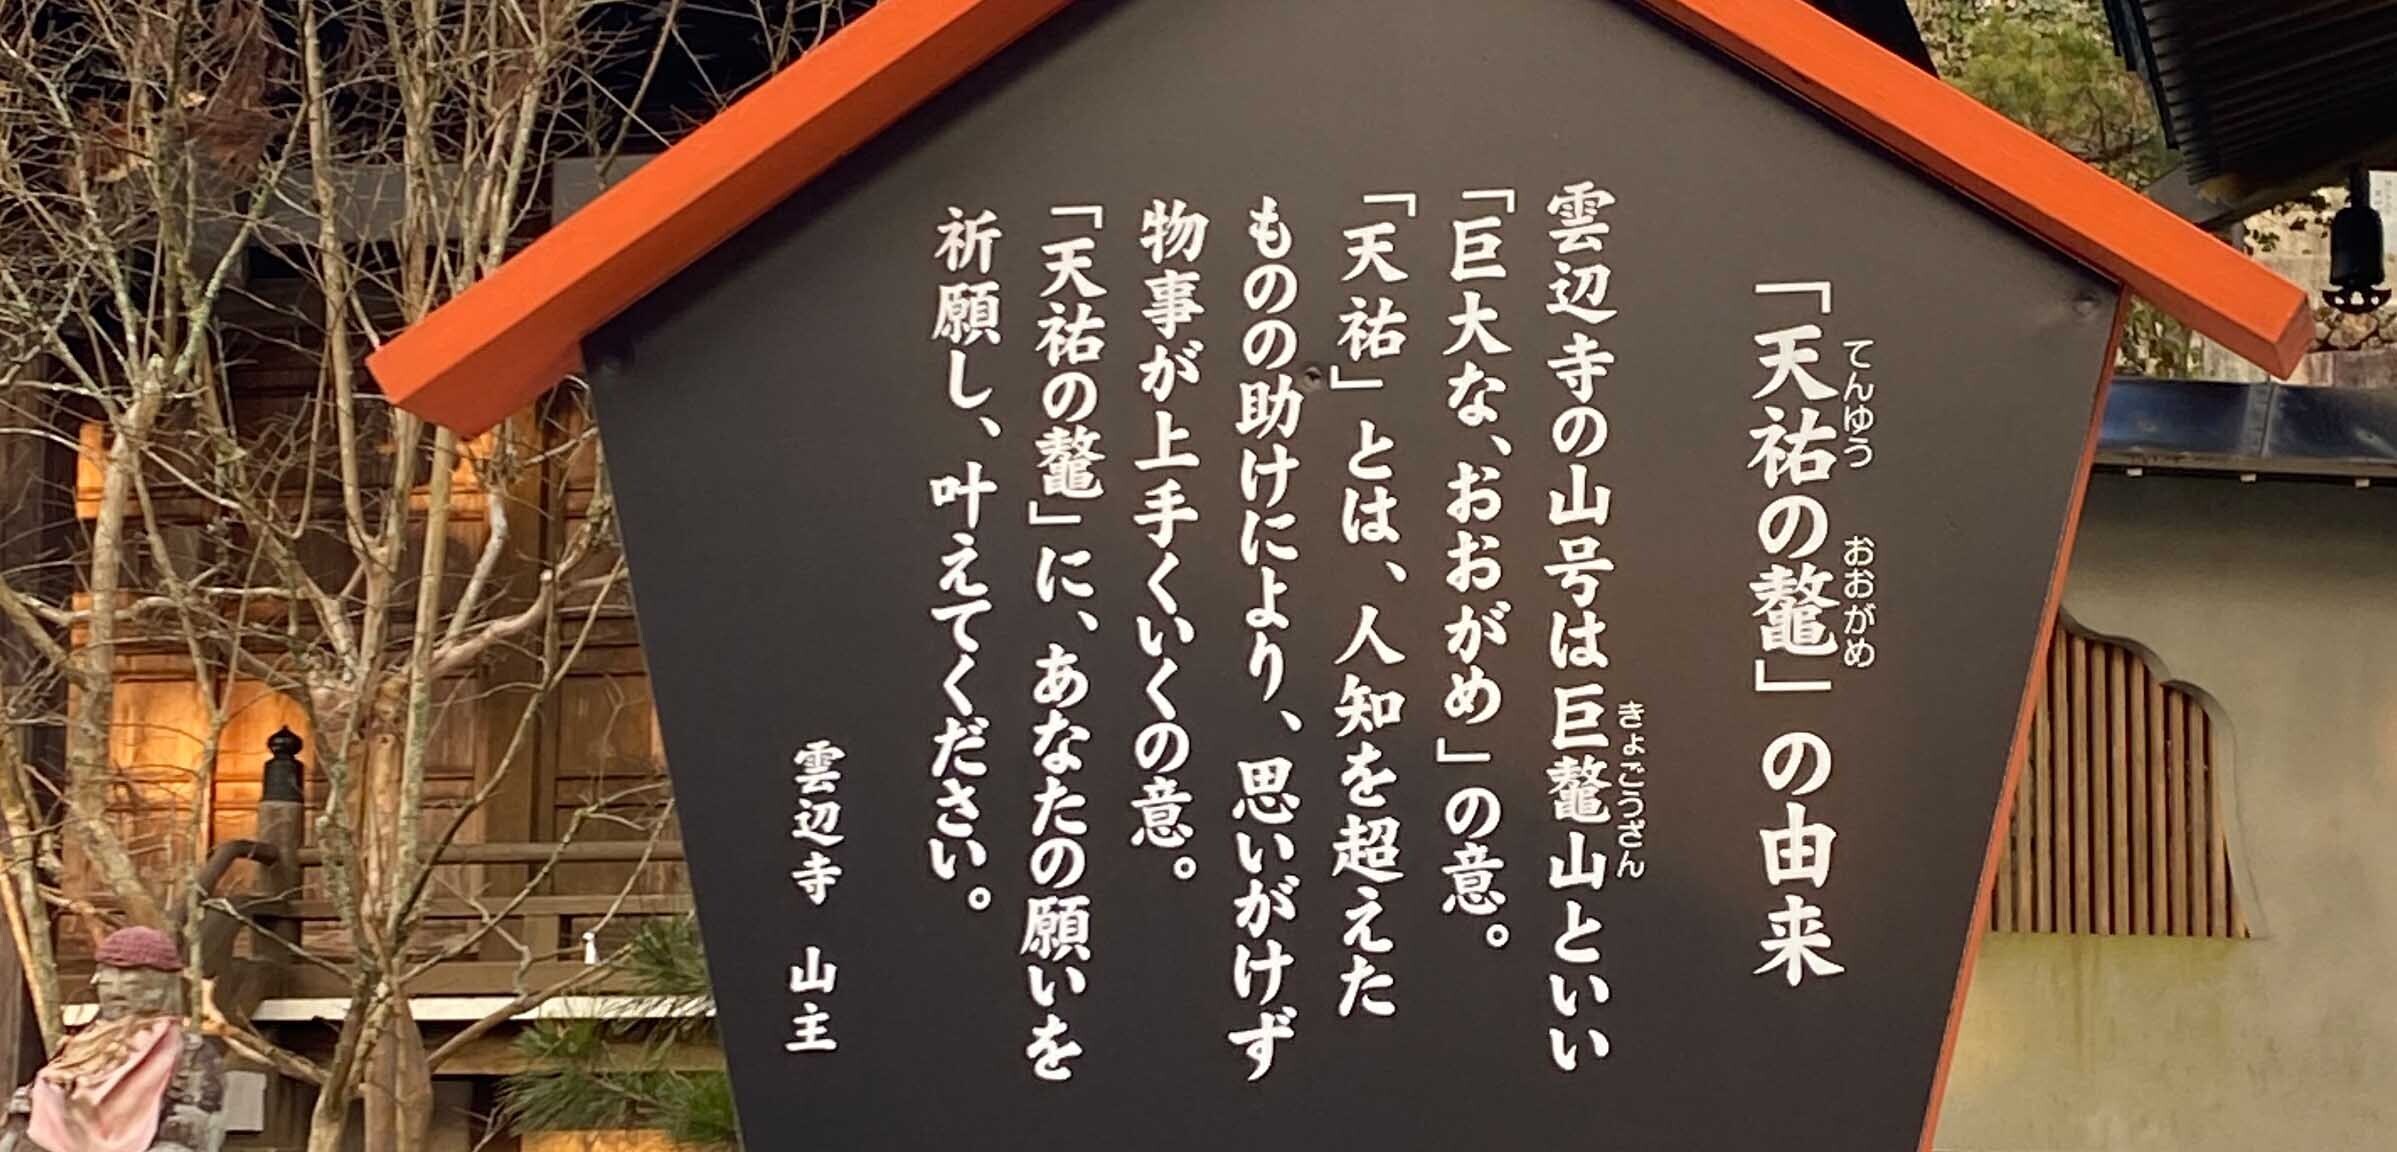 「天祐の鼇」の由来
てんゆう おおがめ
雲辺寺の山号は巨鼇山といい
きょごうざん
「巨大な、おおがめ」の意。
「天祐」とは、人知を超えた
ものの助けにより、思いがけず
物事が上手くいくの意。
「天祐の鼇」に、あなたの願いを
祈願し、叶えてください。
雲辺寺 山主